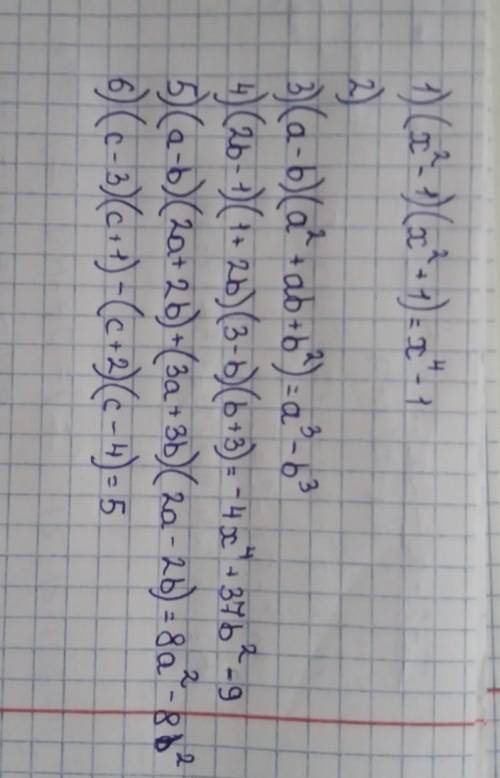 1) (x² - 1)(x² + 1) = x⁴ - 1
2)
3) (a - b)(a² + ab + b²) = a³ - b³
4) (2b - 1)(1 + 2b)(3 - b)(b + 3) = -4x⁴ + 37b² - 9
5) (a - b)(2a + 2b) + (3a + 3b)(2a - 2b) = 8a² - 8b²
6) (c - 3)(c + 1) - (c + 2)(c - 4) = 5